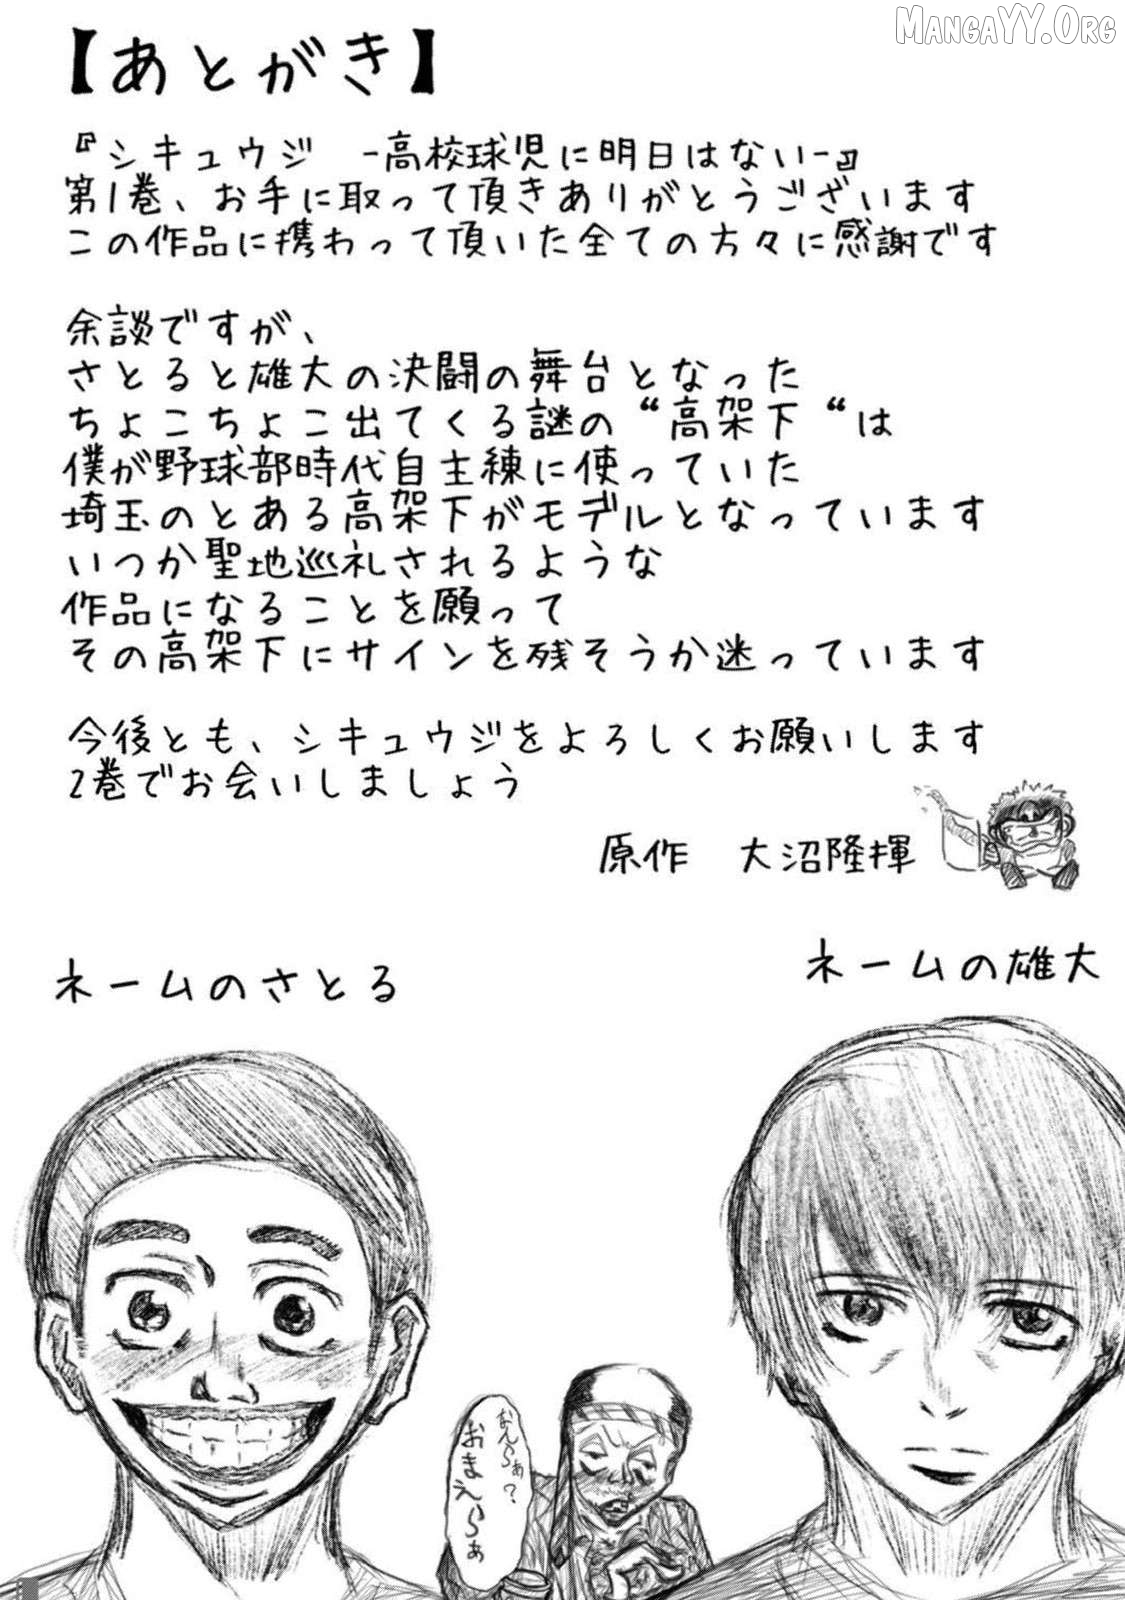 MANGAYY.ORG
【あとがき】
『シキュウジ -高校球児に明日はない-』
第1巻、お手に取って頂きありがとうございます
この作品に携わって頂いた全ての方々に感謝です
余談ですが、
さとると雄大の決闘の舞台となった
ちょこちょこ出てくる謎の“高架下“は
僕が野球部時代自主練に使っていた
埼玉のとある高架下がモデルとなっています
いつか聖地巡礼されるような
作品になることを願って
その高架下にサインを残そうか迷っています
今後とも、シキュウジをよろしくお願いします
2巻でお会いしましょう
原作 大沼隆揮
ネームのさとる
ネームの雄大
なんらぁ?
おまえらぁ